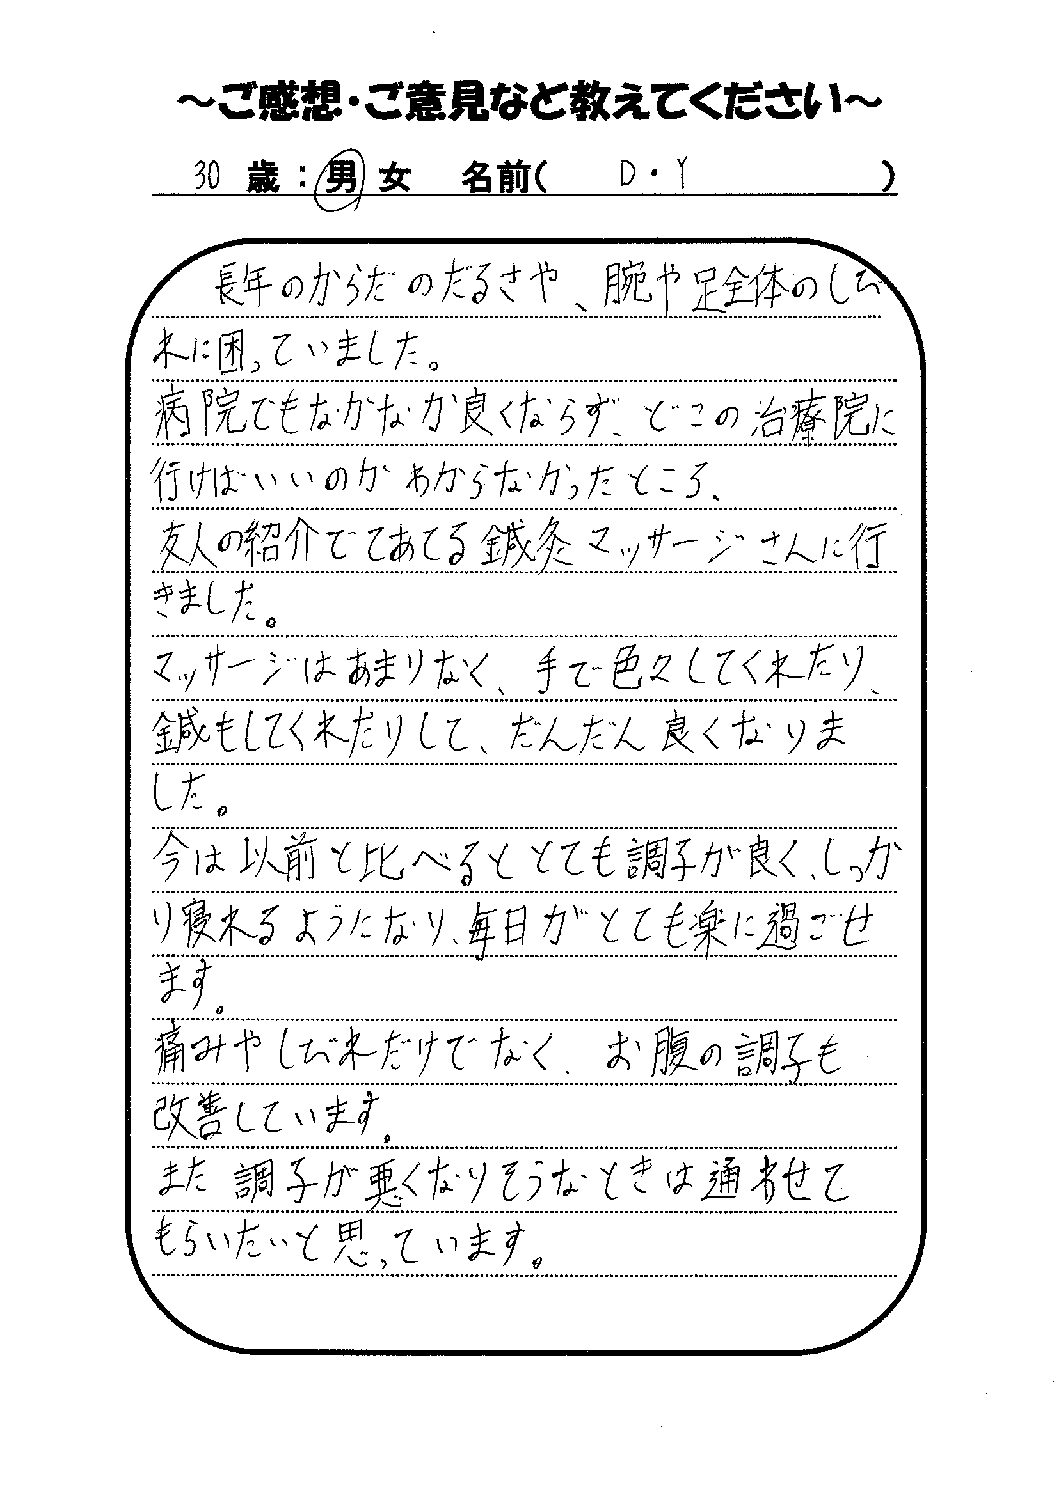 ～ご感想・ご意見など教えてください～
30 歳：男 女 名前( D・Y )
長年のからだのだるさや、腕や足全体のしび
れに困っていました。
病院でもなかなか良くならず、どこの治療院に
行けばいいのかわからなかったところ、
友人の紹介でてあてる鍼灸マッサージさんに行
きました。
マッサージはあまりなく、手で色々してくれたり、
鍼もしてくれたりして、だんだん良くなりま
した。
今は以前と比べるととても調子が良く、しっか
り寝れるようになり、毎日がとても楽に過ごせ
ます。
痛みやしびれだけでなく、お腹の調子も
改善しています。
また調子が悪くなりそうなときは通わせて
もらいたいと思っています。